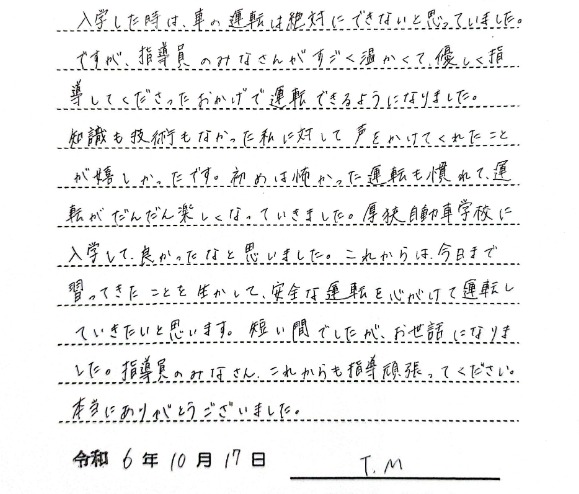 入学した時は、車の運転は絶対にできないと思っていました。
ですが、指導員のみなさんがすごく温かくて、優しく指
導してくださったおかげで運転できるようになりました。
知識も技術もなかった私に対して声をかけてくれたこと
が嬉しかったです。初めは怖かった運転も慣れて、運
転がだんだん楽しくなっていきました。厚狭自動車学校に
入学して、良かったなと思いました。これからは、今日まで
習ってきたことを生かして、安全な運転を心がけて運転し
ていきたいと思います。短い間でしたが、お世話になりま
した。指導員のみなさん、これからも指導頑張ってください。
本当にありがとうございました。
令和 6 年 10 月 17 日 T.M